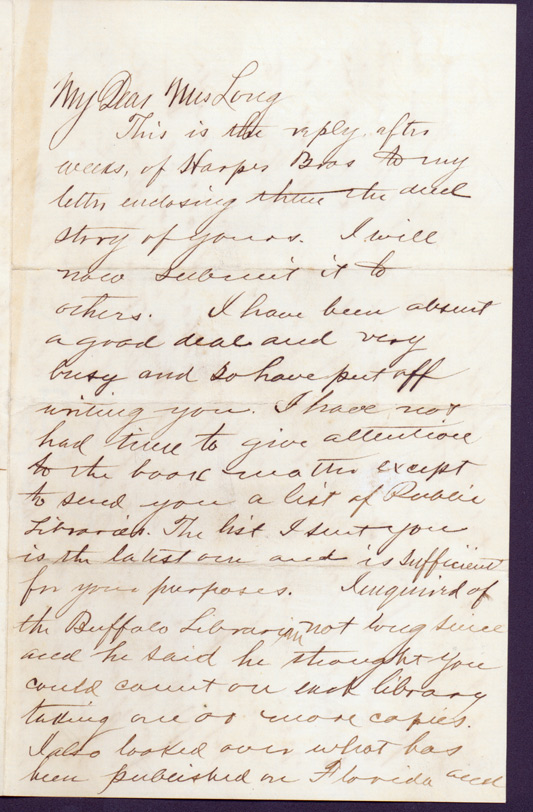 My Dear Mrs Long
This is the reply, after
weeks, of Harper Bros to my
letter enclosing the duel
story of yours. I will
now submit it to
others. I have been absent
a good deal and very
busy and so have put off
writing you. I have not
had time to give attention
to the book matter except
to send you a list of Public
Libraries. The list I sent you
is the latest one and is sufficient
for your purposes. I inquired of
the Buffalo Librarian not long since
and he said he thought you
could count on each library
taking one or more copies.
I also looked over what has
been published on Florida and